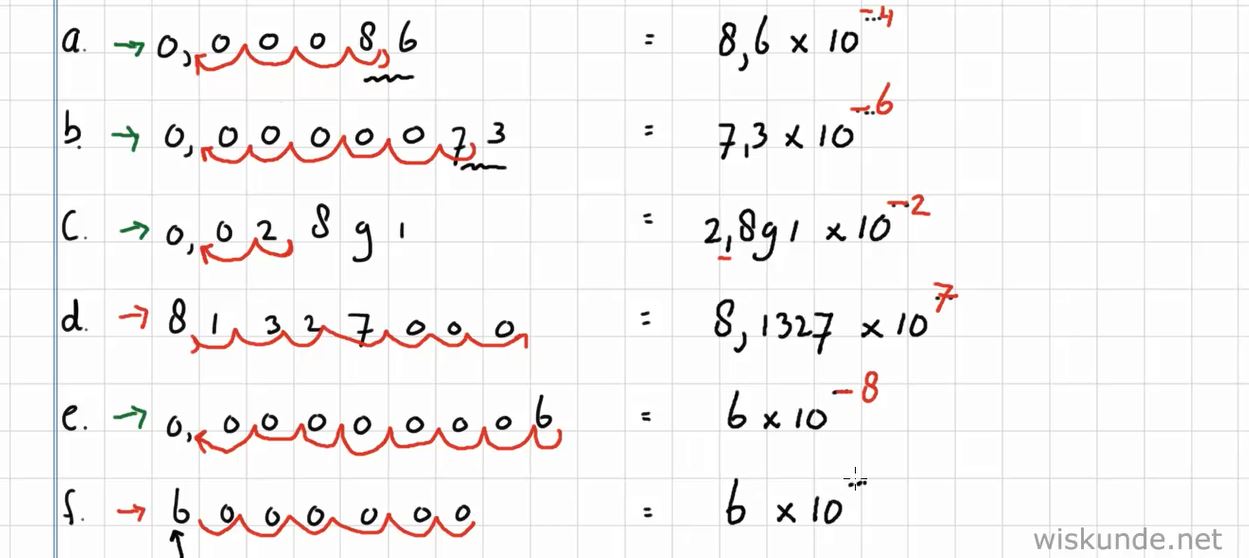 a. → 0,00086 = 8,6 × 10⁻⁴
b. → 0,0000073 = 7,3 × 10⁻⁶
c. → 0,02891 = 2,891 × 10⁻²
d. → 81327000 = 8,1327 × 10⁷
e. → 0,00000006 = 6 × 10⁻⁸
f. → 6000000 = 6 × 10
wiskunde.net